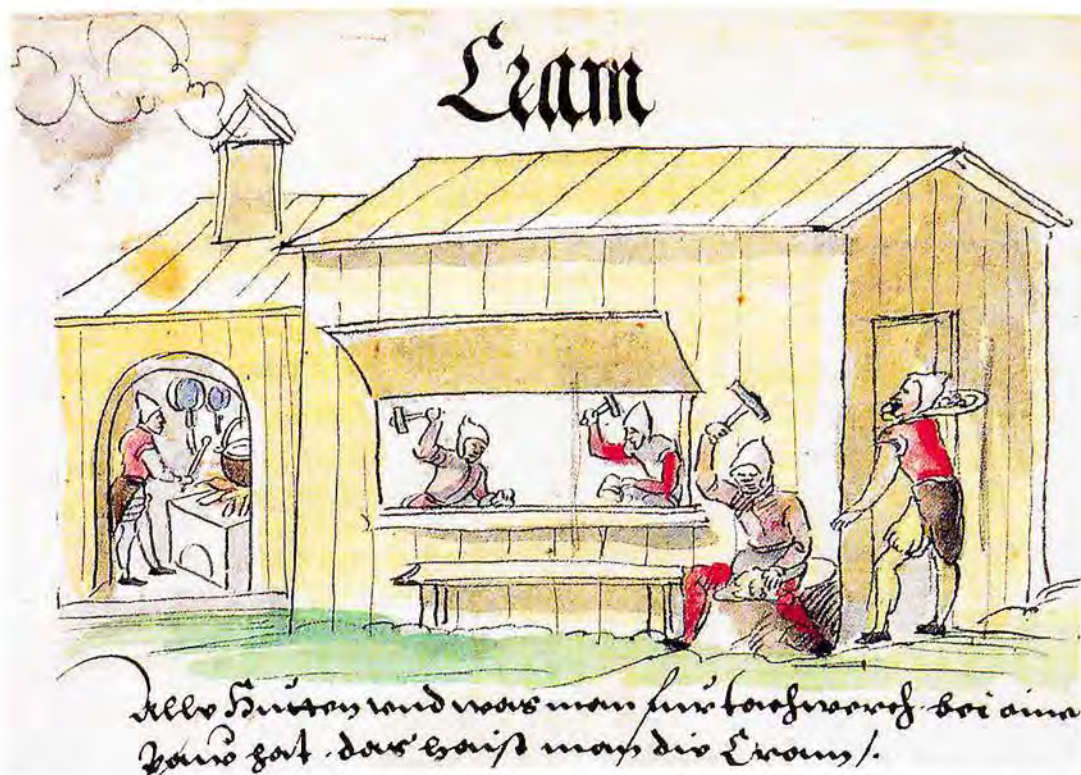 Cram
Alle Hütten und was man für tachwerch bei aine
paw hat. das haist man die Cram /.